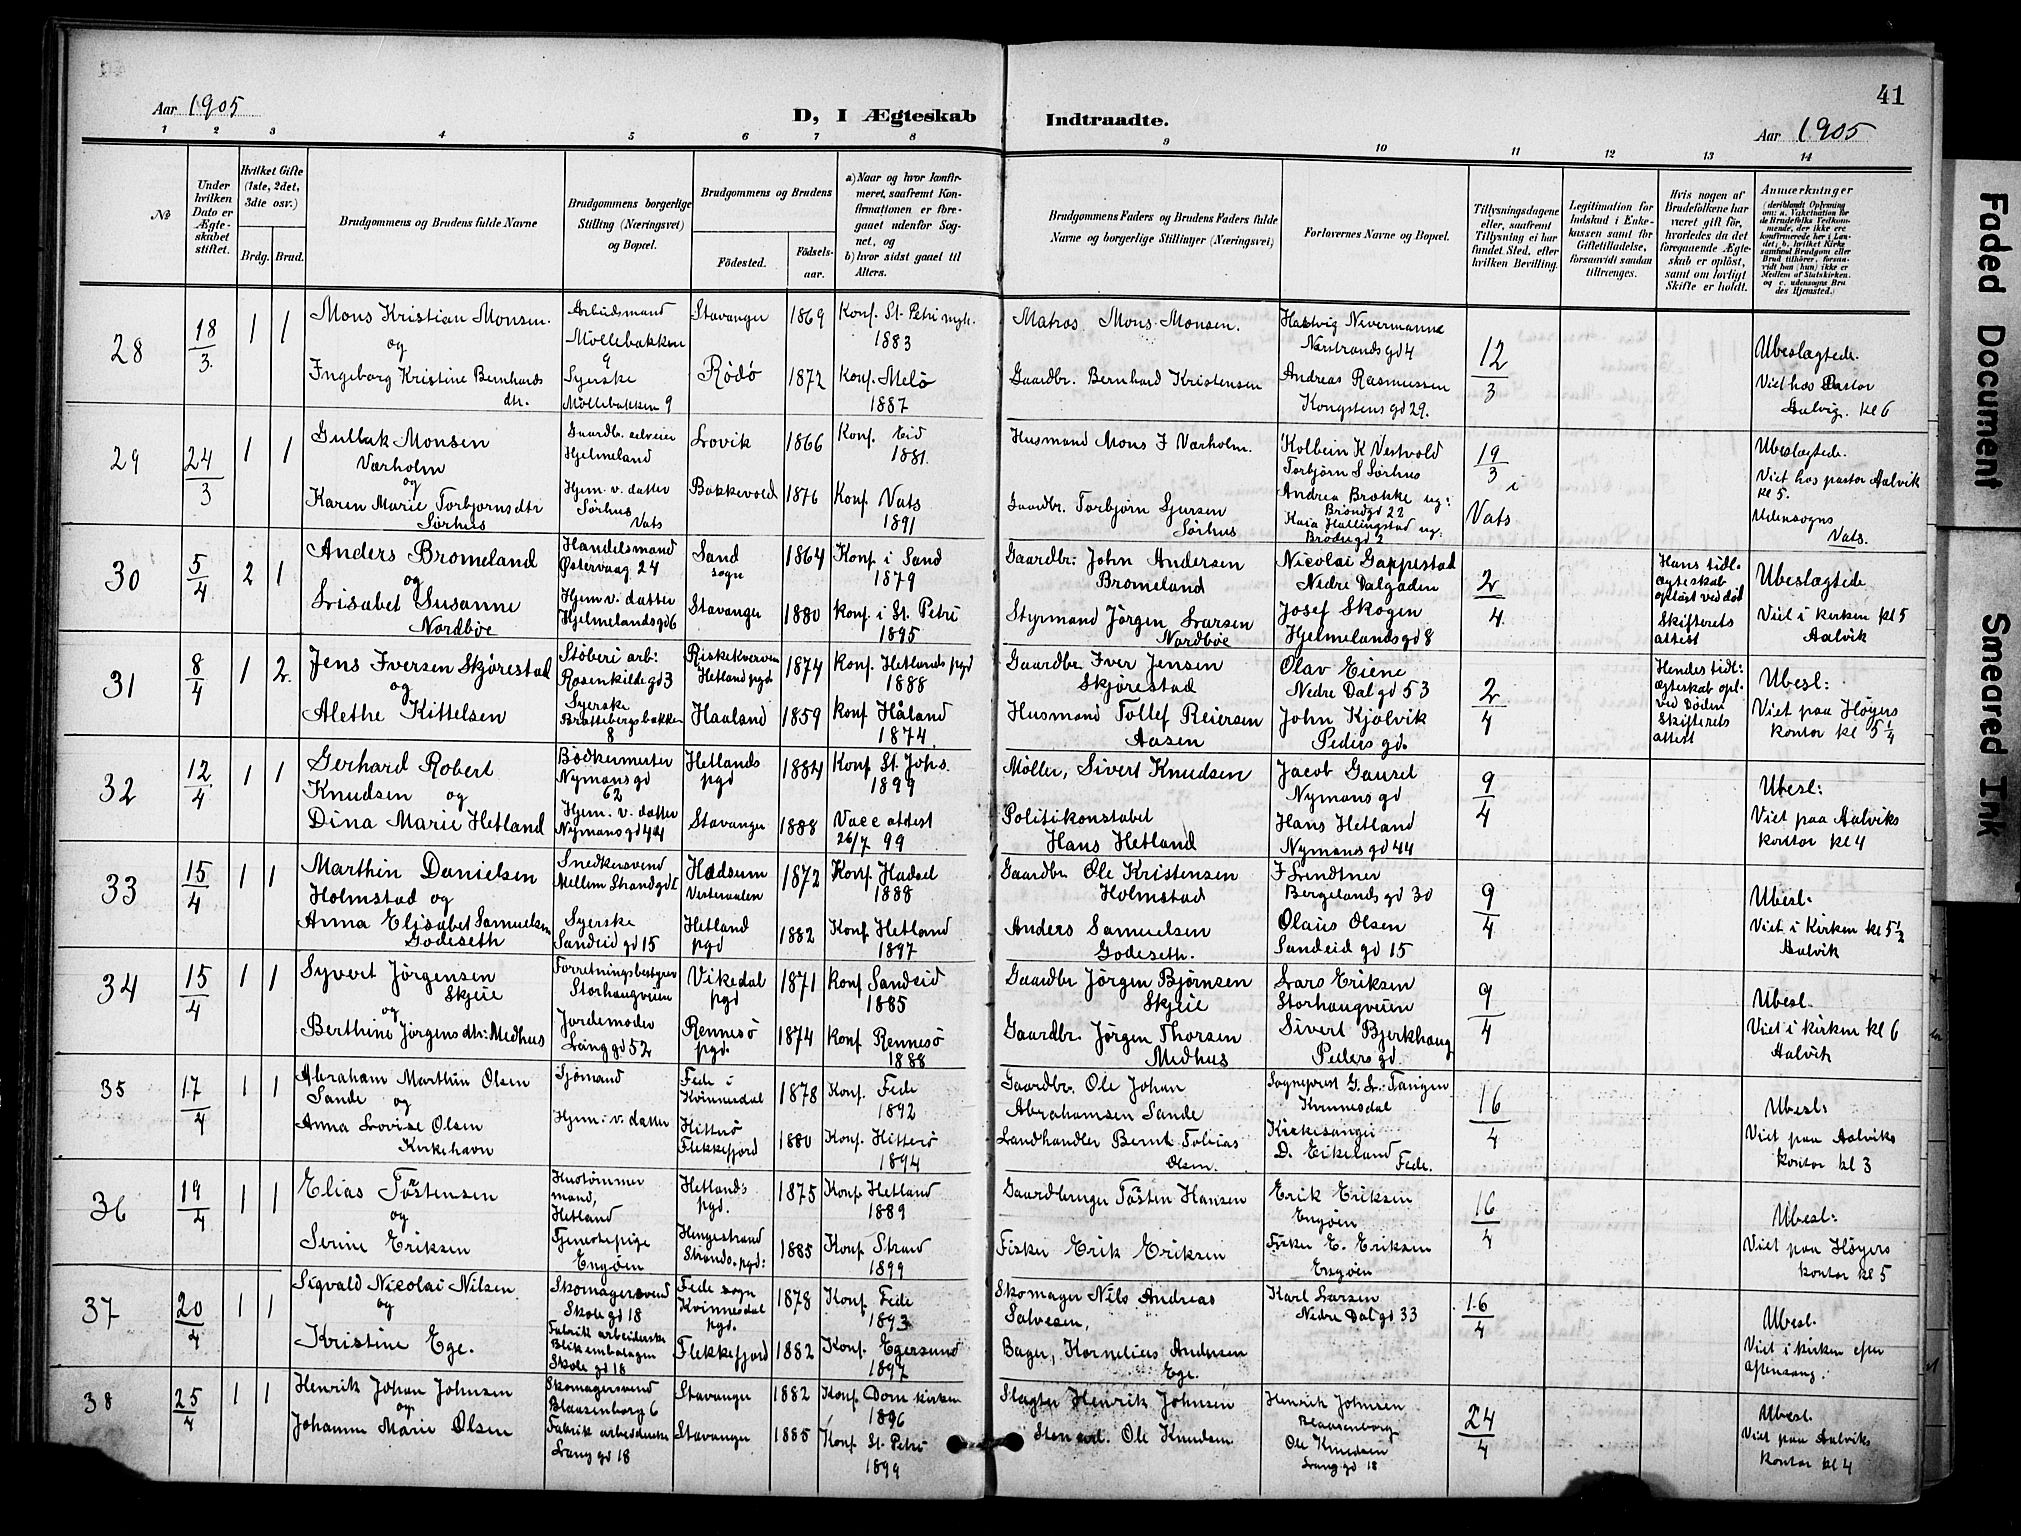 41
Aar 1905
D, I Ægteskab Indtraadte.
Aar 1905
1 2 3 4 5 6 7 8 9 10 11 12 13 14
No
Under hvilken Dato er Ægteskabet stiftet.
Hvilket Gifte (1ste, 2det, 3die osv.)
Brdg. Brud.
Brudgommens og Brudens fulde Navne
Brudgommens borgerlige Stilling (Næringsvei) og Bopæl.
Brudgommens og Brudens
Fødested. Fødselsaar.
a) Naar og hvor konfirmeret, saafremt Konfirmationen er foregaaet udenfor Sognet, og
b) hvor sidst gaaet til Alters.
Brudgommens Faders og Brudens Faders fulde Navne og borgerlige Stillinger (Næringsvei)
Forlovernes Navne og Bopæl.
Tillysningsdagene eller, saafremt Tillysning ei har fundet Sted, efter hvilken Bevilling.
Legitimation for Indskud i Enkekassen samt for Giftetilladelse, forsaavidt saadan tiltrænges.
Hvis nogen af Brudefolkene har været gift før, hvorledes da det foregaaende Ægteskab er opløst, samt om lovligt Skifte er holdt.
Anmærkninger
28 18/3 1 1
Mons Kristian Monsen
og
Ingeborg Kristine Bernhards
dtr.
Arbeidsmand
Møllebakken
9
Syerske
Møllebakken 9
Stavanger 1869
Rødø 1872
Konf. St. Petri mgh.
1883
Konf. Melø
1887
Matros Mons Monsen.
Gaardbr. Bernhard Kristensen
Hartvig Nivermanne
Nørstrandsgd 4
Andreas Rasmussen
Kongstens gd 29.
12/3
Ubeslægtede.
Viet hos Pastor
Aalvig. kl 6
29 24/3 1 1
Gullak Monsen
Værholm
og
Karen Marie Torbjørnsdtr
Sørhus
Gaardb. selveier
Hjelmeland
Hjem. v. datter
Sørhus
Vats
Lovik 1866
Bakkevold 1876
Konf. Eid
1881.
Konf Vats
1891
Husmand Mons J Værholm.
Gaardbr. Torbjørn Gjersen
Sørhus
Kolbein K Vestvold
Torbjørn S Sørhus
Andrea Brække ug:
Brøndgd 22
Kaia Hallingstad ug:
Brødregd 2
19/3 i
Vats
Ubeslægtede.
Viet hos pastor Aalvik
kl 5.
Udensogns
Vats.
30 5/4 2 1
Anders Bromeland
og
Lisabet Susanne
Nordbøe
Handelsmand
Østervaag 24
Hjem v. datter
Hjelmelandsgd 6
Sand
sogn 1864
Stavanger 1880
Konf i Sand
1879
Konf i St. Petri
1895
Gaardbr: John Andersen
Bromeland
Styrmand Jørgen Larsen
Nordbøe
Nicolai Gappestad
Nedre Dalgaden
Josef Skogen
Hjelmelandsgd 8
2/4
Hans tidl.
ægteskab
opløst ved død
Skifterets
attest
Ubeslægtede
Viet i kirken kl 5
Aalvik
31 8/4 1 2.
Jens Iversen Skjørestad
og
Alethe Kittelsen
Støberi arb:
Rosenkildegd 3
Syerske
Brattebergsbakken
8
Riskekverven
Hetland pgd 1874
Haaland 1859
Konf. Hetlands pgd
1888
Konf Håland
1874.
Gaardbr Iver Jensen
Skjørestad
Husmand Tollef Reiersen
Aasen
Olav Eiene
Nedre Dal gd 53
John Kjølvik
Peders gd.
2/4
Hendes tidl:
ægteskab opl.
ved Døden
Skifterets
attest
Ubesl:
Viet paa Høyers
kontor kl 5 1/4
32 12/4 1 1
Gerhard Robert
Knudsen og
Dina Marie Hetland
Bødkermester
Nymans gd
62
Hjem. v. datter
Nymans gd 44
Hetlands
pgd 1884
Stavanger 1888
Konf St. Johs.
1899
Vacc attest
26/7 99
Møller, Sivert Knudsen
Politikonstabel
Hans Hetland
Jacob Gausel
Nymans gd
Hans Hetland
Nymans gd 44
9/4
Ubesl:
Viet paa Aalviks
kontor kl 4
33 15/4 1 1
Marthin Danielsen
Holmstad og
Anna Elisabet Samuelsen
Godeseth
Snedkersvend
Mellem Strandgd
Syerske
Sandeid gd 15
Hadsum
Vesteraalen 1872
Hetland
pgd 1882
Konf. Hadsel
1888
Konf Hetland
1897
Gaardbr Ole Kristensen
Holmstad
Anders Samuelsen
Godeseth.
F Lendtner
Bergelands gd 30
Olaus Olsen
Sandeid gd 15
9/4
Ubesl:
Viet i Kirken kl 5 1/2
Aalvik
34 15/4 1 1
Syvert Jørgensen
Skjeie
og
Berthine Jørgensdtr: Medhus
Forretningsbestyrer
Storhaugveien
Jordemoder
Langgd 52
Vikedal
pgd 1871
Rennesø
pgd. 1874
Konf Sandeid
1885
Konf Rennesø
1888
Gaardbr Jørgen Bjørnsen
Skjeie
Gaardbr. Jørgen Thorsen
Medhus
Lars Eriksen
Storhaugveien
Sivert Bjerkhaug
Peders gd.
9/4
Ubesl.
Viet i kirken kl 6
Aalvik
35 17/4 1 1
Abraham Marthin Olsen
Sande og
Anna Lovise Olsen
Kirkehavn
Sjømand
Hjem: v. datter
Fede i
Kvinnesdal 1878
Hitterø
Flekkefjord 1880
Konf. Fede
1892
Konf. Hitterø
1894
Gaardbr. Ole Johan
Abrahamsen Sande
Landhandler Bernt Tobias
Olsen.
Sogneprest G. L. Tangen
Kvinnesdal
Kirkesanger
D. Eikeland
Fede.
16/4
Ubesl:
Viet paa Aalviks
kontor kl 3
36 19/4 1 1
Elias Tostensen
og
Serine Eriksen
Hustømmer
mand,
Hetland
Tjenestepige
Engøen
Hetlands
pgd. 1875
Hengestrand
Strands pgd: 1885
Konf. Hetland
1889
Konf Strand
1899
Gaardbruger Tosten Hansen
Fisker Erik Eriksen
Erik Eriksen
Engøen
Fisker E. Eriksen
Engøen
16/4
Ubesl:
Viet paa Høyers
kontor kl 5
37 20/4 1 1
Sigvald Nicolai Nilsen
og
Kristine Ege.
Skomagersvend
Skole gd 18
Fabrik arbeiderske
Blikembalagen
Skole gd 18
Fede sogn
Kvinnesdal
pgd. 1878
Flekkefjord 1882
Konf. Fede
1893
Konf. Egersund
1897
Skomager Nils Andreas
Salvesen,
Bager, Kornelius Andersen
Ege.
Karl Larsen
Nedre Dal gd 33
16/4
Ubesl.
Viet i kirken efter
aftensang.
38 25/4 1 1
Henrik Johan Johnsen
og
Johanne Marie Olsen
Skomagersvend
Blaasenborg 6
Fabrik arbeiderske
Langgd 18
Stavanger 1882
Stavanger 1885
Konf Domkirken
1896
Konf St. Petri
1899
Slagter Henrik Johnsen
Stenarb. Ole Knudsen
Henrik Johnsen
Blaasenborg
Ole Knudsen
Langgd 18
24/4
Ubesl.
Viet paa Aalviks
kontor kl 4
Faded Document
Smeared Ink